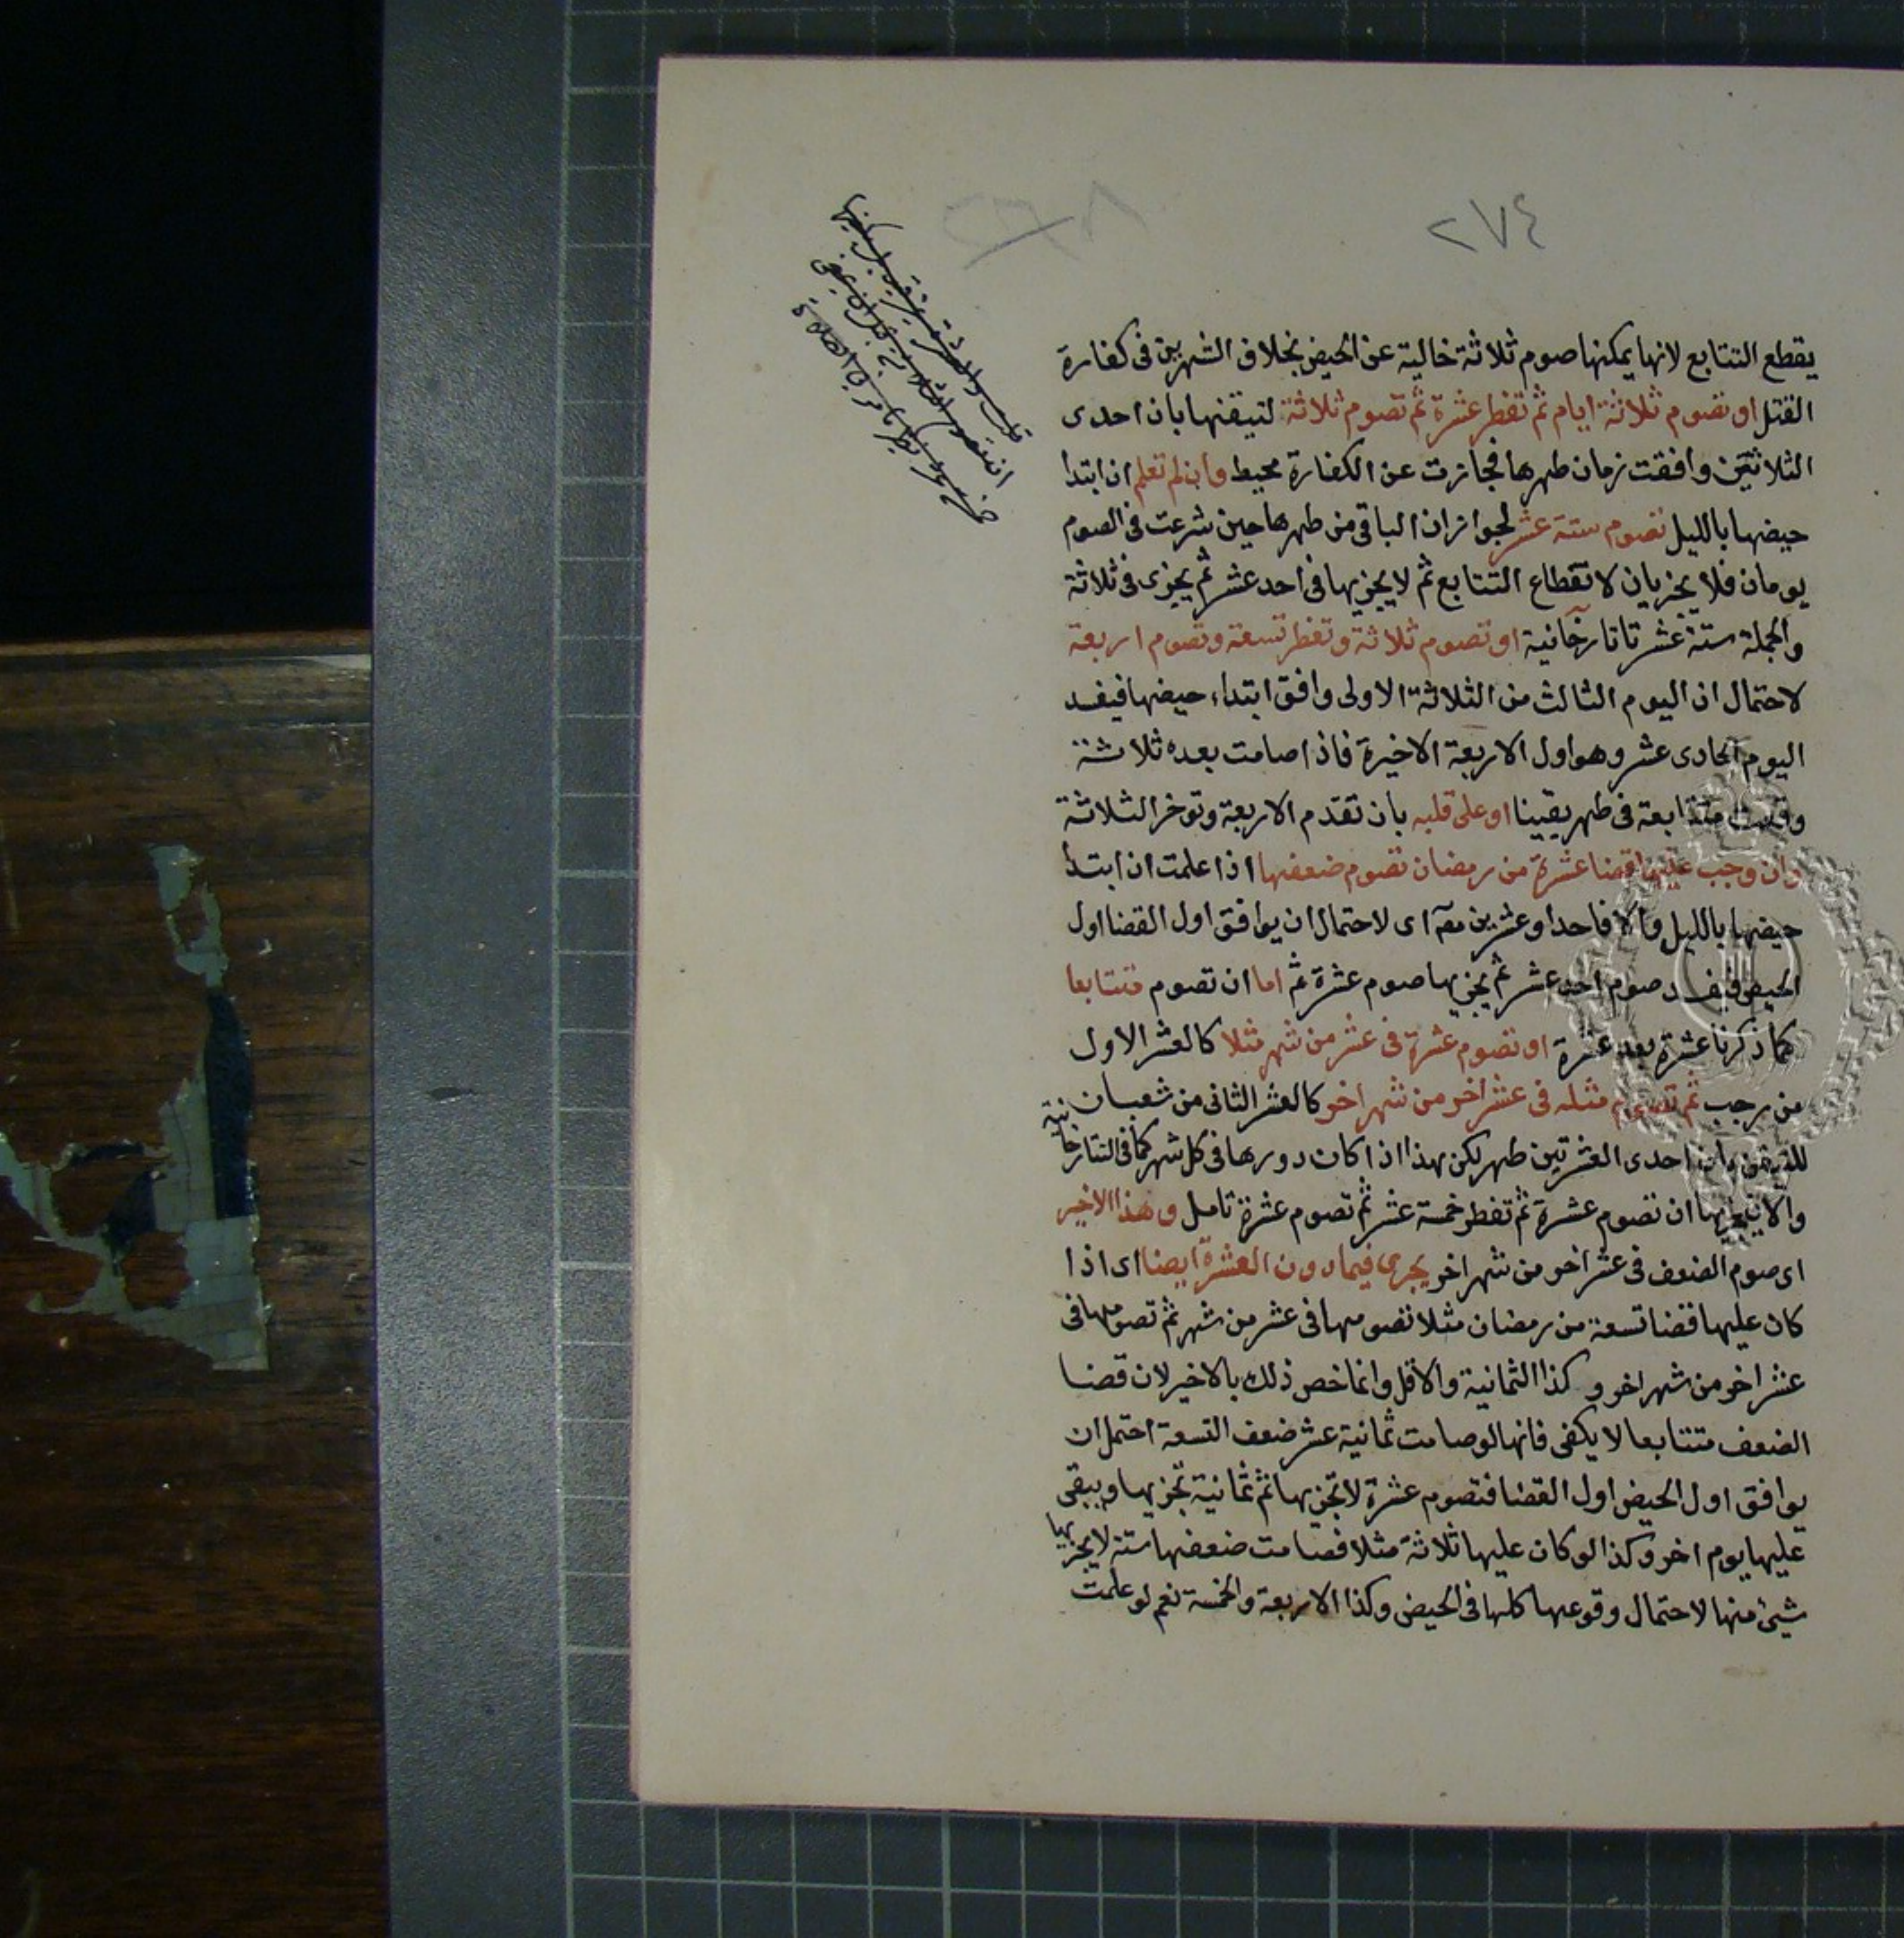 ٢٧٤
يقطع التتابع لانها يمكنها صوم ثلاثة خالية عن الحيض بخلاف الشهرين فى كفارة
القتل او تصوم ثلاثة ايام ثم تفطر عشرة ثم تصوم ثلاثة لتيقنها بان احدى
الثلاثتين وافقت زمان طهرها فجازت عن الكفارة محيط وان لم تعلم ان ابتدأ
حيضها بالليل تصوم ستة عشر لجواز ان الباقى من طهرها حين شرعت فى الصوم
يومان فلا يجزيان لانقطاع التتابع ثم لا يجزيها فى احد عشر ثم يجزى فى ثلاثة
والجملة ستة عشر تاتارخانية او تصوم ثلاثة وتفطر تسعة وتصوم اربعة
لاحتمال ان اليوم الثالث من الثلاثة الاولى وافق ابتداء حيضها فيفسد
اليوم الحادى عشر وهو اول الاربعة الاخيرة فاذا صامت بعده ثلاثة
وقعت متتابعة فى طهر يقينا او على قلبه بان تقدم الاربعة وتوخر الثلاثة
وان وجب عليها قضا عشرة من رمضان تصوم ضعفها اذا علمت ان ابتدأ
حيضها بالليل والا فاحدا وعشرين اى لاحتمال ان يوافق اول القضا اول
الحيض فيفسد صوم احد عشر ثم يجزيها صوم عشرة ثم اما ان تصوم متتابعا
كما ذكرنا عشرة بعد عشرة او تصوم عشرة فى عشر من شهر مثلا كالعشر الاول
من رجب ثم تصوم مثله فى عشر اخر من شهر اخر كالعشر الثانى من شعبان
للتيقن بان احدى العشرتين طهر لكن هذا اذا كان دورها فى كل شهر كما فى التتارخانية
والا يجزيها ان تصوم عشرة ثم تفطر خمسة عشر ثم تصوم عشرة تامل وهذا الاخير
اى صوم الضعف فى عشر اخر من شهر اخر يجرى فيما دون العشرة ايضا اى اذا
كان عليها قضا تسعة من رمضان مثلا تصومها فى عشر من شهر ثم تصومها فى
عشر اخر من شهر اخر و كذا الثمانية والاقل وانما خص ذلك بالاخير لان قضا
الضعف متتابعا لا يكفى فانها لو صامت ثمانية عشر ضعف التسعة احتمل ان
يوافق اول الحيض اول القضا فتصوم عشرة لا تجزيها ثم ثمانية تجزيها ويبقى
عليها يوم اخر وكذا لو كان عليها ثلاثة مثلا فصامت ضعفها ستة لا يجزيها
شيئ منها لاحتمال وقوعها كلها فى الحيض وكذا الاربعة والخمسة نعم لو علمت